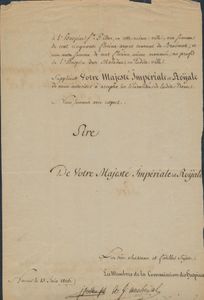 à l'Hospice St. Pierre, en cette même ville, une somme
de cent cinquante florins argent courant de Brabant, et
une autre somme de cent florins même monnaie, au profit
de l'Hospice des Malades en ladite ville.
Supplient Votre Majesté Impériale et Royale
de nous autoriser à accepter les libéralités de ladite Dame.
Nous sommes avec respect,
Sire
De Votre Majesté Impériale et Royale
Les très obéissans et fidèles Sujets
Les Membres de la Commission des Hospices